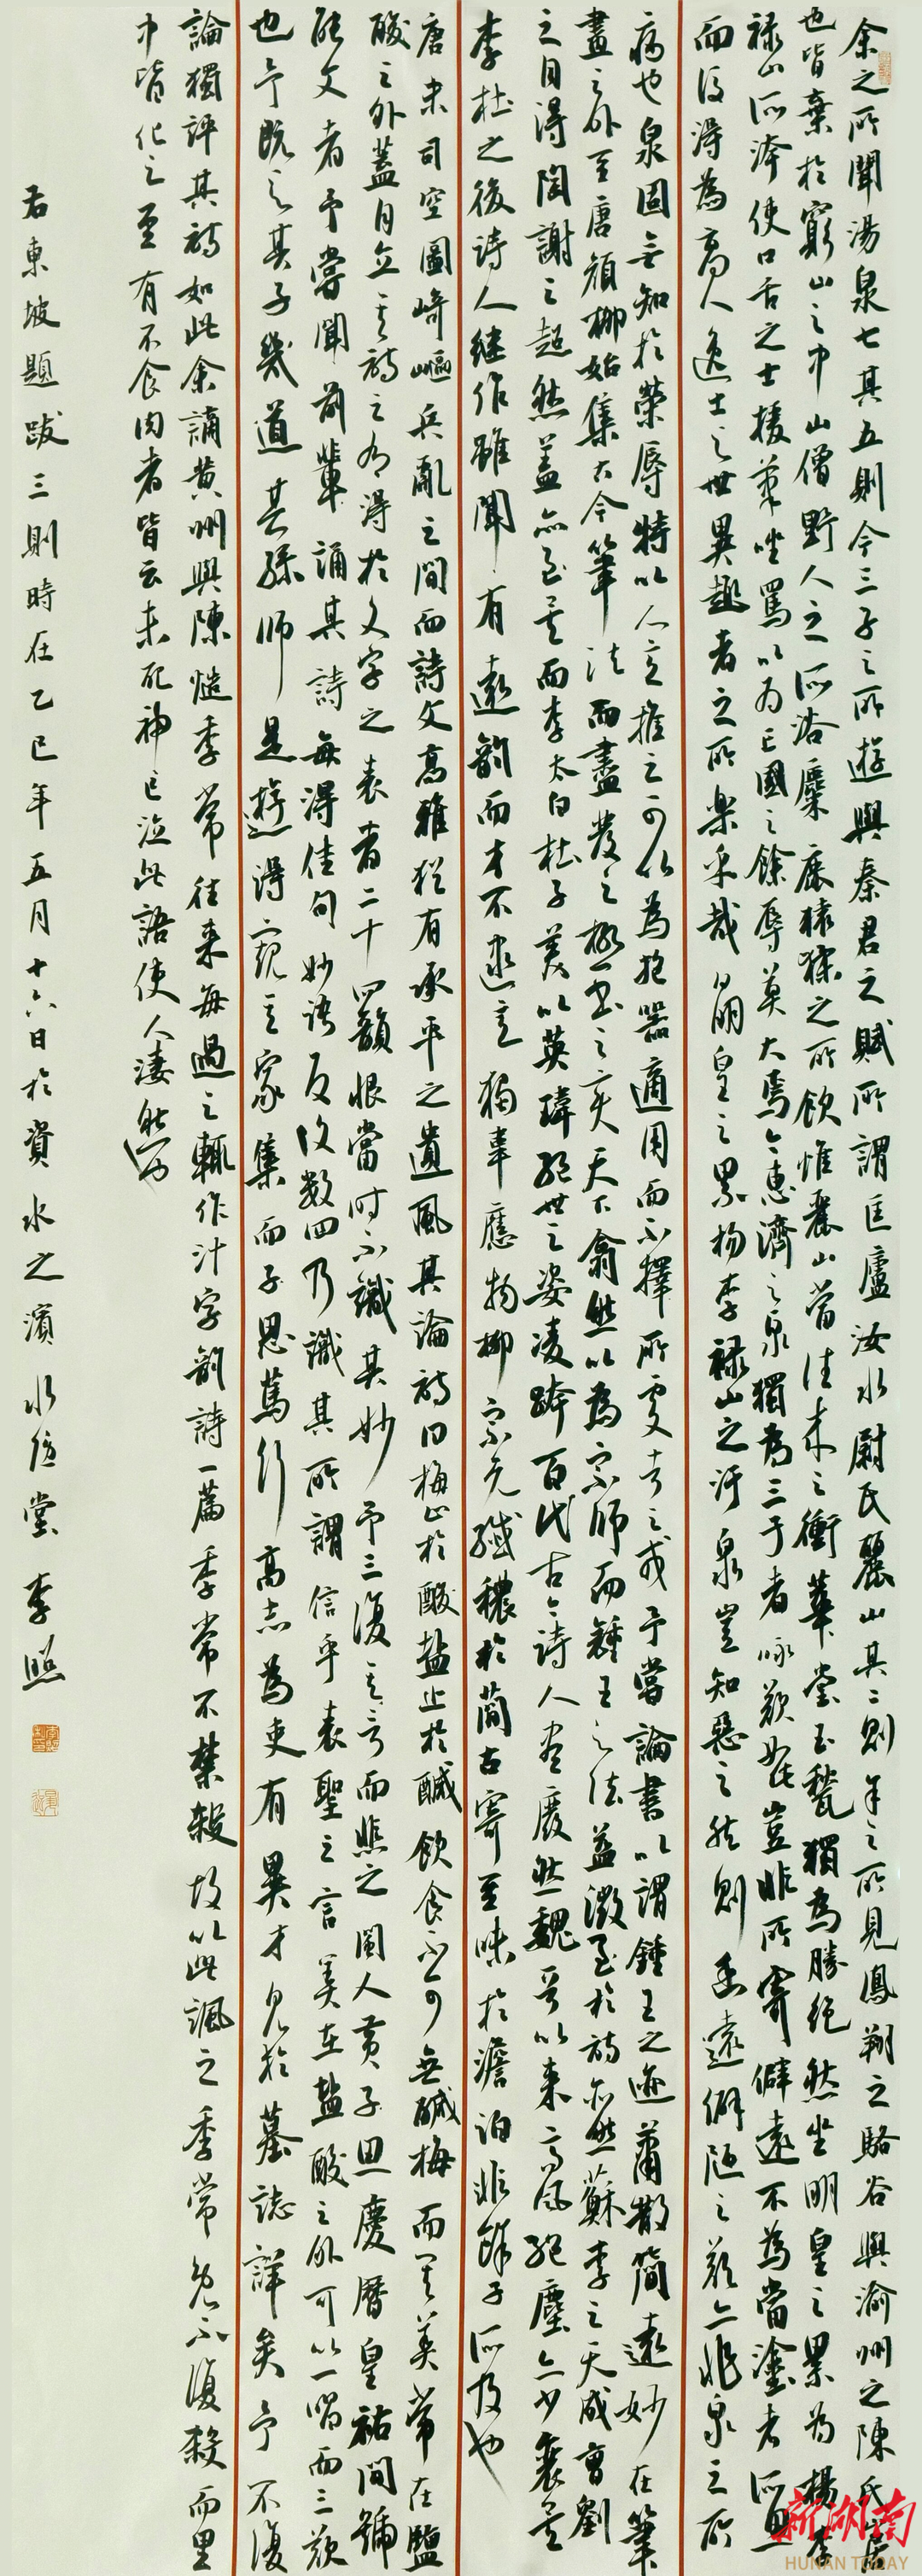 余之所聞湯泉七其五則今三子之所遊與秦君之賦所謂匡廬汝水尉氏驪山其二則余之所見鳳翔之駱谷與渝州之陳氏山居
也皆棄於窮山之中山僧野人之所浴麋鹿猿猱之所飲惟驪山當往來之衝華堂玉甃獨為勝絕然坐明皇之累為楊李
祿山所汙使口舌之士援筆唾罵以為亡國之餘辱莫大焉今惠濟之泉獨為三子者詠歎如此豈非所寄僻遠不為當塗者所慁
而後得為高人逸士之世異趣者之所樂乎哉 明皇之累楊李祿山之汙泉豈知惡之然則幽遠僻陋之歎亦非泉之所
病也泉固無知於榮辱特以人意推之可以為抱器適用而不擇所處者之戒 予嘗論書以謂鍾王之迹蕭散簡遠妙在筆
畫之外至唐顏柳始集古今筆法而盡發之極書之變天下翕然以為宗師而鍾王之法益微至於詩亦然蘇李之天成曹劉
之自得陶謝之超然蓋亦至矣而李太白杜子美以英瑋絕世之姿凌跨百代古今詩人盡廢然魏晉以來高風絕塵亦少衰矣
李杜之後詩人繼作雖間有遠韻而才不逮意獨韋應物柳宗元纖穠於簡古寄至味於澹泊非餘子所及也
唐末司空圖崎嶇兵亂之間而詩文高雅猶有承平之遺風其論詩曰梅止於酸鹽止於鹹飲食不可無鹹梅而其美常在鹽
酸之外蓋自立其詩之有得於文字之表者二十四韻恨當時不識其妙予三復其言而悲之閩人黃子思慶曆皇祐間號
能文者予嘗聞前輩誦其詩每得佳句妙語反復數四乃識其所謂信乎表聖之言美在鹽酸之外可以一唱而三歎
也予既與其子幾道其孫師是遊得窺其家集而子思篤行高志為吏有異才見於墓誌詳矣予不復
論獨評其詩如此 余謫黃州與陳慥季常往來每過之輒作汁字韻詩一篇季常不禁殺故以此諷之季常既不復殺而里
中皆化之至有不食肉者皆云未死神已泣此語使人淒然也
右東坡題跋三則時在乙巳年五月十六日於資水之濱 李照
新湖南
HUNAN TODAY